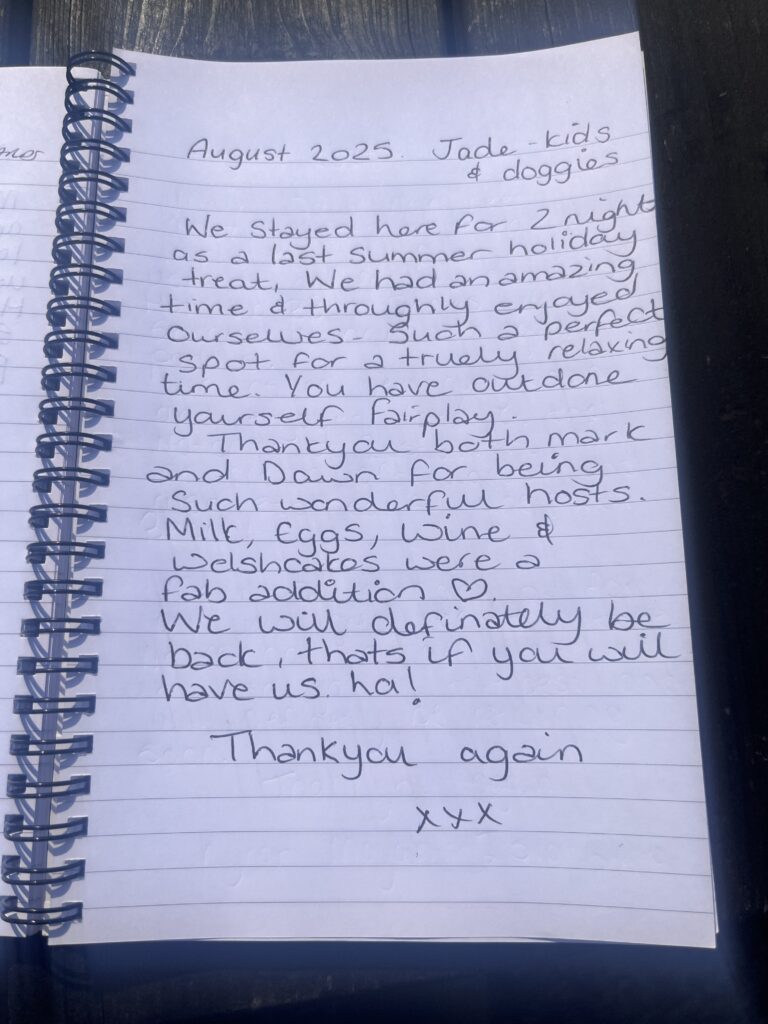 August 2025. Jade - kids
& doggies
We stayed here for 2 night
as a last summer holiday
treat, We had an amazing
time & throughly enjoyed
ourselves - Such a perfect
spot for a truely relaxing
time. You have outdone
yourself fairplay.
Thankyou both mark
and Dawn for being
such wonderful hosts.
Milk, Eggs, wine &
welshcakes were a
fab addition ♡.
We will definately be
back, thats if you will
have us. ha!
Thankyou again
xxx